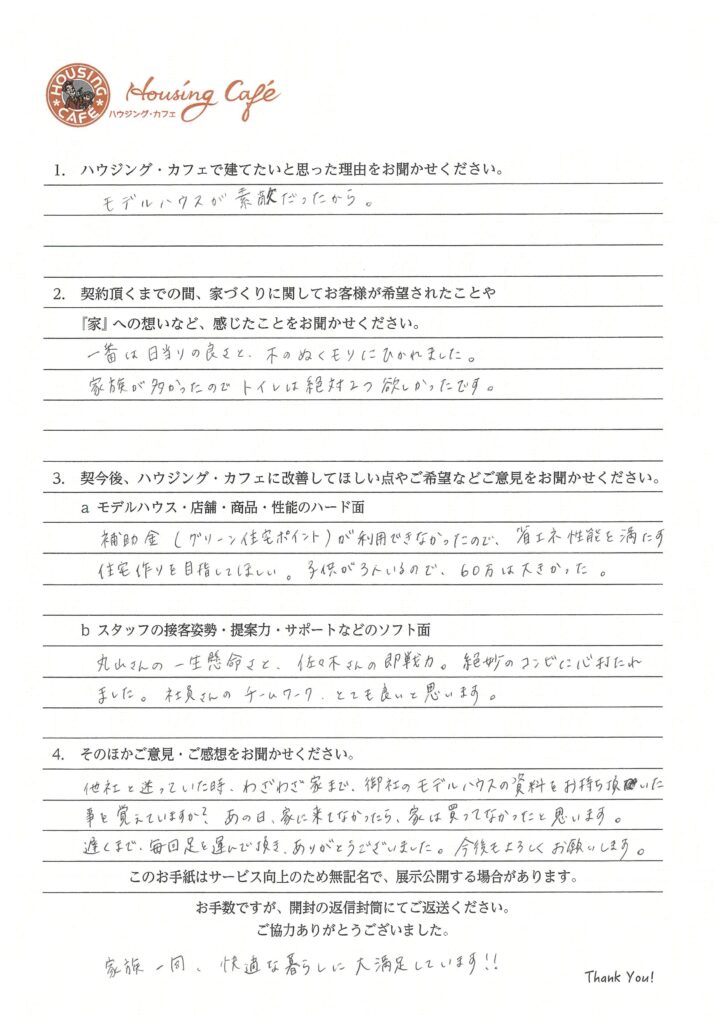 HOUSING CAFE
Housing Café
ハウジング・カフェ
1. ハウジング・カフェで建てたいと思った理由をお聞かせください。
モデルハウスが素敵だったから。
2. 契約頂くまでの間、家づくりに関してお客様が希望されたことや
『家』への想いなど、感じたことをお聞かせください。
一番は日当りの良さと、木のぬくモリにひかれました。
家族が多かったのでトイレは絶対2つ欲しかったです。
3. 契今後、ハウジング・カフェに改善してほしい点やご希望などご意見をお聞かせください。
a モデルハウス・店舗・商品・性能のハード面
補助金(グリーン住宅ポイント)が利用できなかったので、省エネ性能を満たす
住宅作りを目指してほしい。子供が3人いるので、60万は大きかった。
b スタッフの接客姿勢・提案力・サポートなどのソフト面
丸山さんの一生懸命さと、佐々木さんの即戦力。絶妙のコンビに心打たれ
ました。社員さんのチームワーク、とても良いと思います。
4. そのほかご意見・ご感想をお聞かせください。
他社と迷っていた時、わざわざ家まで、御社のモデルハウスの資料をお持ち頂いた
事を覚えていますか？あの日、家に来てなかったら、家は買ってなかったと思います。
遅くまで、毎回足を運んで頂き、ありがとうございました。今後もよろしくお願いします。
このお手紙はサービス向上のため無記名で、展示公開する場合があります。
お手数ですが、開封の返信封筒にてご返送ください。
ご協力ありがとうございました。
家族一同、快適な暮らしに大満足しています!!
Thank You!